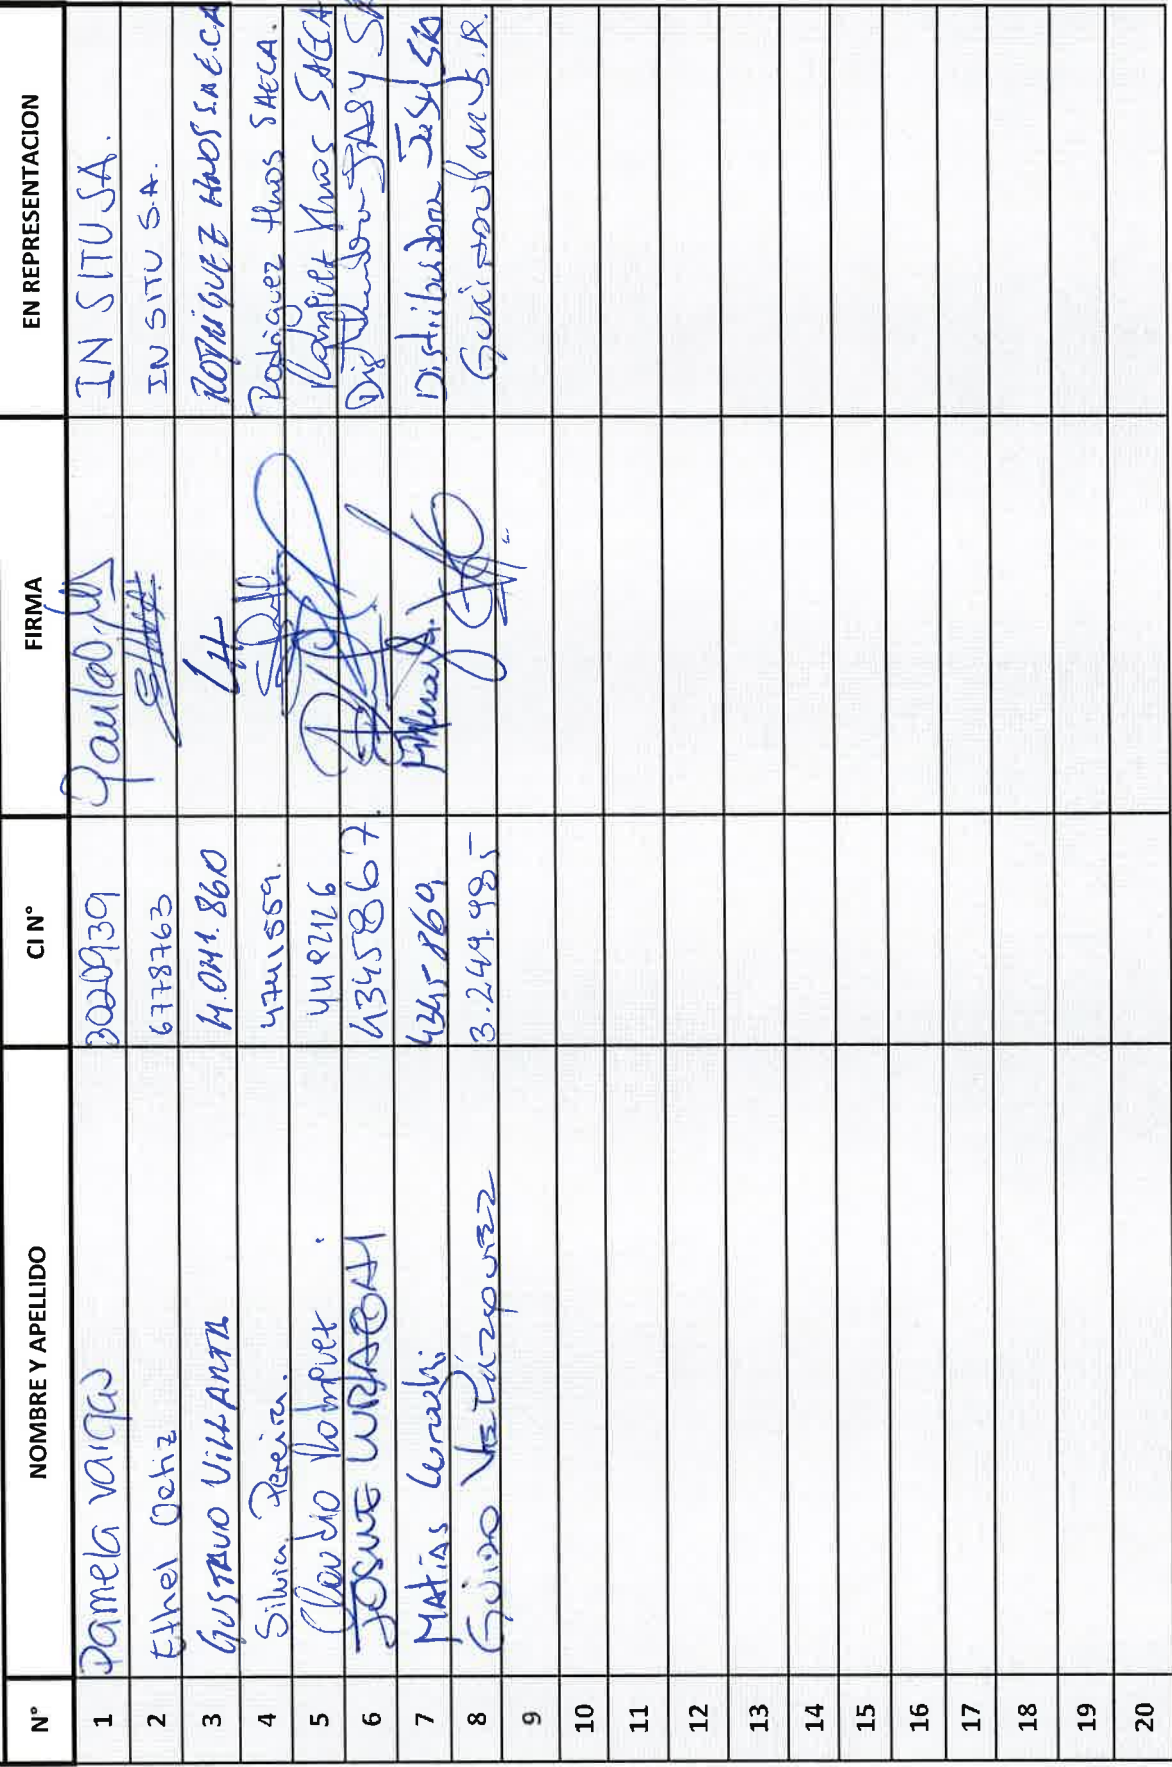 N° NOMBRE Y APELLIDO CI N° FIRMA EN REPRESENTACION
1 Pamela Vargas 3020939 IN SITU SA.
2 Ethel Ortiz 6778763 IN SITU S.A.
3 GUSTAVO VILLALTA 4.041.860 RODRIGUEZ HNOS S.A.E.C.A
4 Silvia Pereira. 4741559. Rodriguez Hnos SAECA.
5 Claudio Rodriguez 442126 Rodriguez Hnos SAECA
6 JOSUE 4345867. Distribuidora JASY SA
7 MATÍAS 4345869 Distribuidora Jasy SA
8 GUIDO VELÁZQUEZ 3.249.985
9
10
11
12
13
14
15
16
17
18
19
20